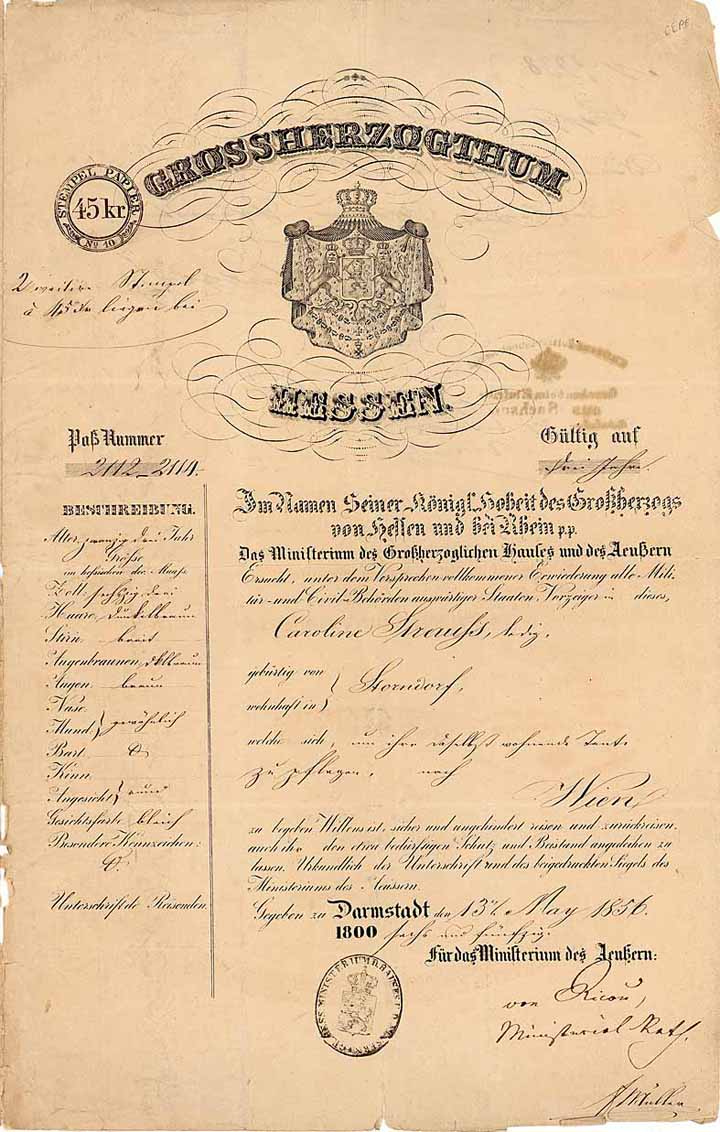 GROSSHERZOGTHUM
STEMPEL PAPIER
45 kr.
No 10
2 weitere Stempel
à 45 kr liegen bei
HESSEN.
Paß Nummer
2112-2114.
Gültig auf
drei Jahre.
BESCHREIBUNG.
Alter, zwanzig drei Jahr
Grösse
im hessischen Maas
Zoll sechzig drei
Haare, dunkelbraun
Stirn breit
Augenbraunen, dklbraun
Augen braun
Nase
Mund } gewöhnlich
Bart
Kinn
Angesicht } rund
Gesichtsfarbe bleich
Besondere Kennzeichen:
Unterschrift de Reisenden.
Im Namen Seiner Königl. Hoheit des Großherzogs
von Hessen und bei Rhein p.p.
Das Ministerium des Großherzoglichen Hauses und des Aeußern
Ersucht, unter dem Versprechen vollkommener Erwiederung alle Mili-
tär- und Civil-Behörden auswärtiger Staaten, Vorzeiger in dieses,
Caroline Strauß, ledig,
gebürtig von
wohnhaft in } Storndorf,
welche sich, um ihre daselbst wohnende Tante
zu pflegen, nach
Wien
zu begeben Willens ist, sicher und ungehindert reisen und zurückreisen,
auch ihr den etwa bedürftigen Schutz und Beistand angedeihen zu
lassen. Urkundlich der Unterschrift und des beigedruckten Siegels des
Ministeriums des Aeussern.
Gegeben zu Darmstadt den 13t May 1856.
1800 sechs und fünfzig.
Für das Ministerium des Aeußern:
von Ricou,
Ministerial Rath.
Müller